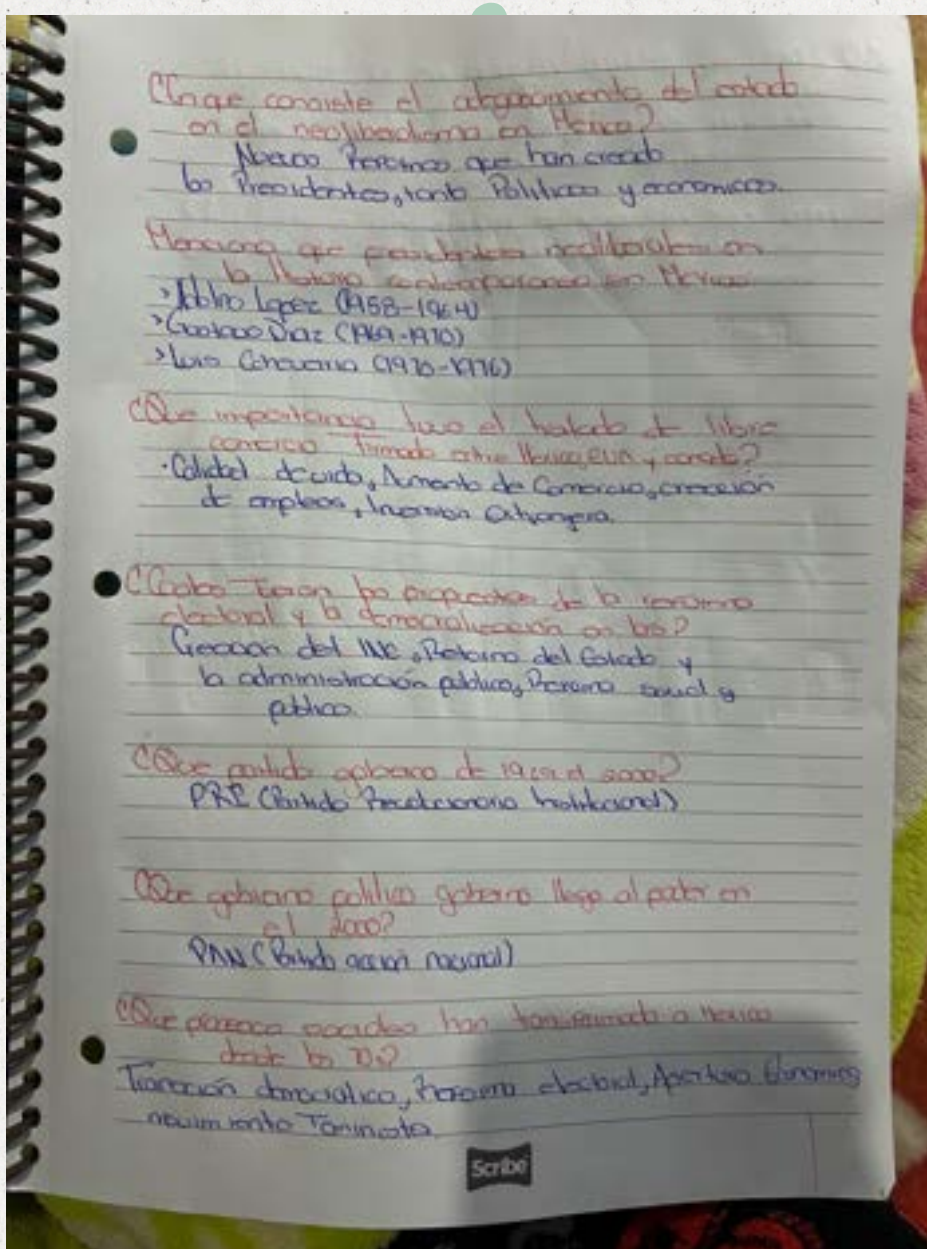 ¿En que consiste el del estado
en el neoliberalismo en Mexico?
que han creado
los Presidentes, tanto Politicos y economicos.
Menciona que presidentes neoliberales en
la historia contemporanea en Mexico
>Adolfo Lopez (1958-1964)
>Gustavo Diaz (1969-1970)
>Luis Echeverria (1970-1976)
¿Que importancia tuvo el tratado de libre
comercio firmado entre Mexico, EUA y canada?
·Calidad de vida, Aumento de Comercio, creacion
de empleos, Inversion Extranjera.
¿Cuales los de la
electoral y la democratización en los?
del INE, del Estado y
la administración publica, social y
publica.
¿Que partido goberno de al 2000?
PRI (Partido Revolucionario Institucional)
¿Que gobierno politico goberno llego al poder en
el 2000?
PAN (Partido accion nacional)
¿Que sociales han transformado a Mexico
desde los 70?
democratica, electoral, Apertura Economica
movimiento
Scribe